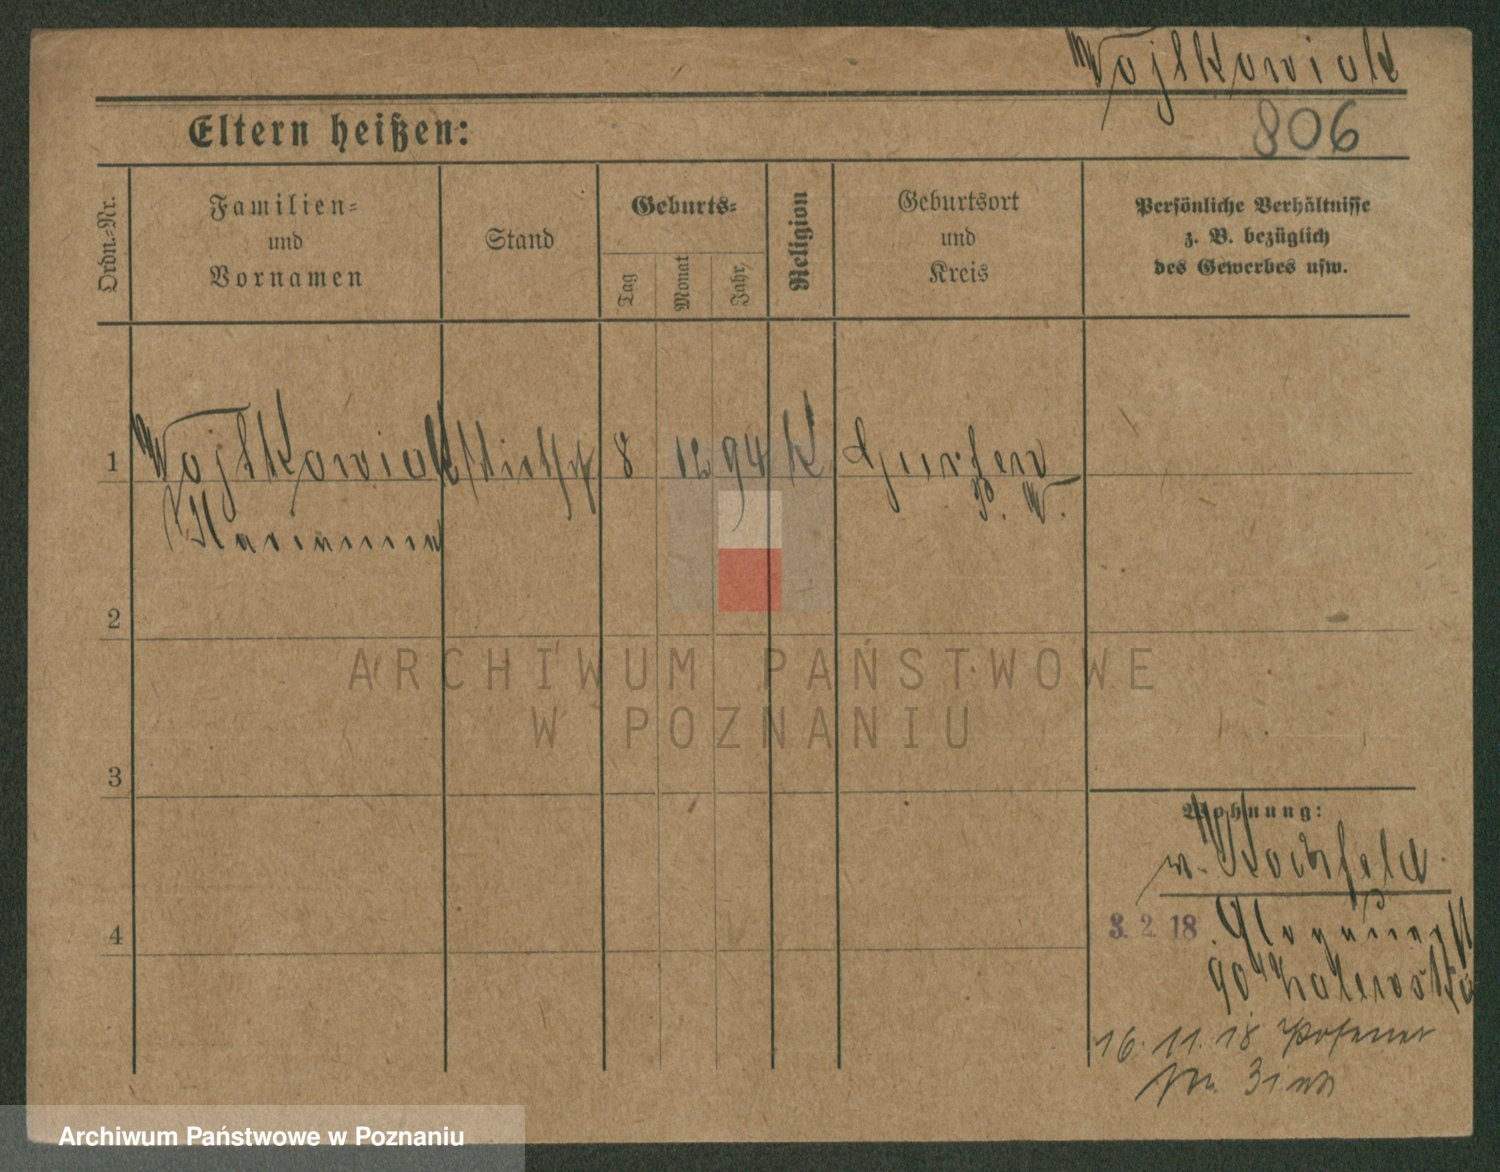 Wojtkowiak
806
Eltern heißen:
Ordn.-Nr.
Familien-
und
Vornamen
Stand
Geburts-
Tag
Monat
Jahr
Religion
Geburtsort
und
Kreis
Persönliche Verhältnisse
z. B. bezüglich
des Gewerbes usw.
1
Wojtkowiak
8
12
94
K
Marianna
P. W.
2
ARCHIWUM PAŃSTWOWE
W POZNANIU
3
Wohnung:
3. 2. 18
4
90
16. 11. 18 Posener
Archiwum Państwowe w Poznaniu